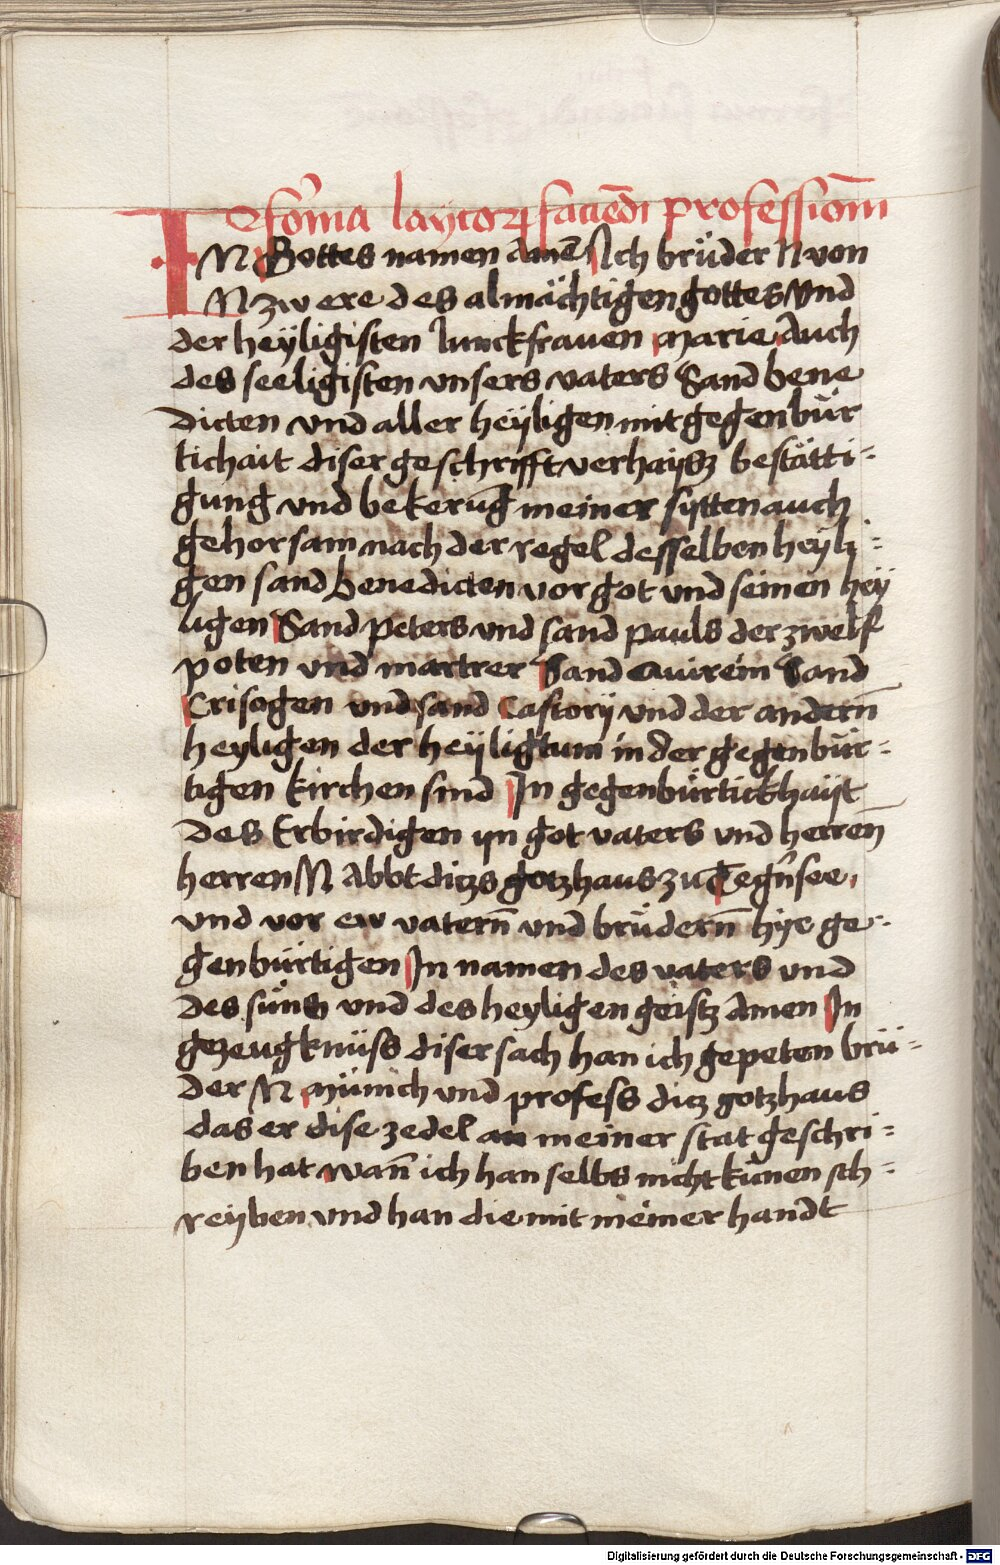 De forma laycorum faciendi professionem
IN Gottes namen Amen Ich brüder N von
N zw ere des almächtigen gottes Vnd
der heyligisten Iunckfrauen marie Auch
des seeligisten vnsers vaters Sand bene
dicten vnd aller heyligen mit gegenbür
tichait diser geschrifft verhaysz bestätti-
gung vnd bekerūg meiner sytten auch
gehorsam nach der regel desselben heyli-
gen sand benedicten vor got vnd seinen hey
ligen Sand peters vnd sand pauls der zwelf
poten vnd martrer Sand Quirein Sand
Crisogen vnd sand Castorij vnd der andern̄
heyligen der heyligtum in der gegenbür-
tigen kirchen sind In gegenbürtickhayt
des Erbirdigen yn got vaters vnd herren̄
herren N Abbt ditzs gotzhaus zu Tegn̄see
vnd vor ew vatern̄ vnd brüdern̄ hye ge-
genbürtigen In namen des vaters vnd
des süns vnd des heyligen geistz Amen In
gezeugknüss diser sach han ich gepeten brü-
der N münich vnd profess ditz gotzhaus
das er dise zedel an meiner stat geschri-
ben hat wan̄ ich han selbs nicht künen sch-
reyben vnd han die mit meiner handt
Digitalisierung gefördert durch die Deutsche Forschungsgemeinschaft - DFG